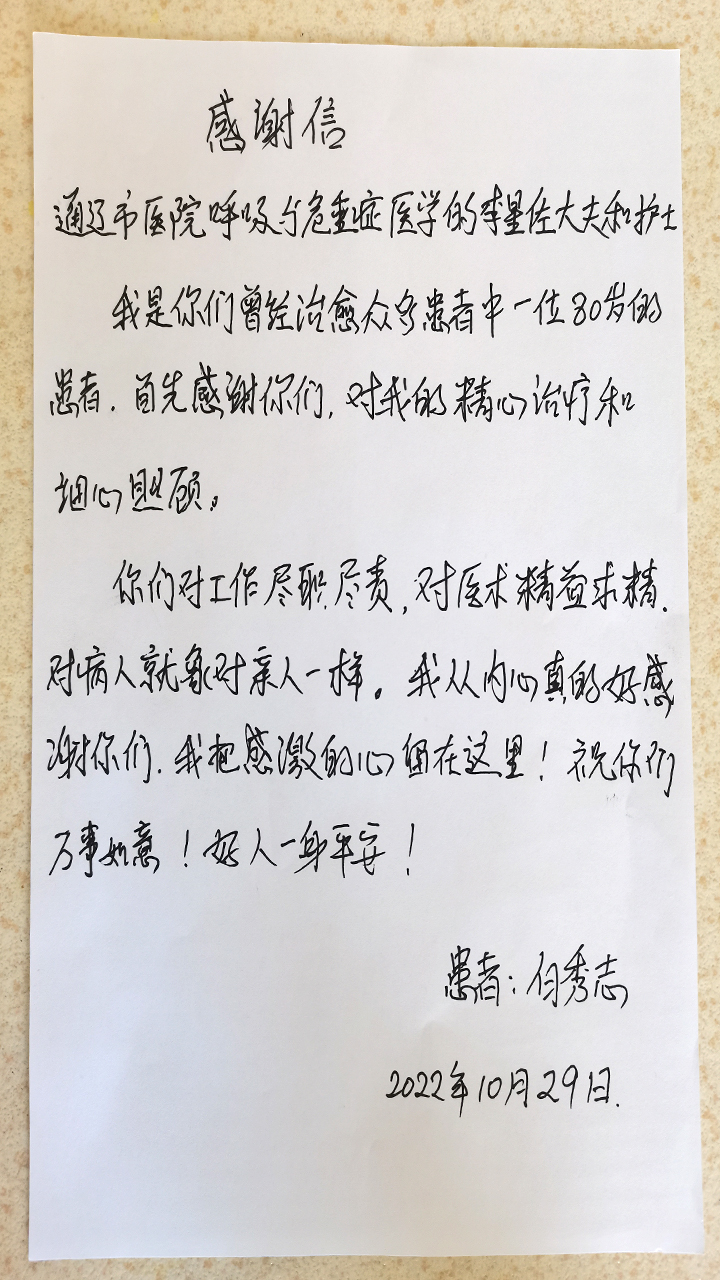 感谢信
通辽市医院呼吸与危重症医学的李星佐大夫和护士
我是你们曾经治愈众多患者中一位80岁的
患者.首先感谢你们,对我的精心治疗和
细心照顾。
你们对工作尽职尽责,对医术精益求精.
对病人就象对亲人一样。我从内心真的好感
谢你们.我把感激的心留在这里!祝你们
万事如意!好人一身平安!
患者:白秀志
2022年10月29日.